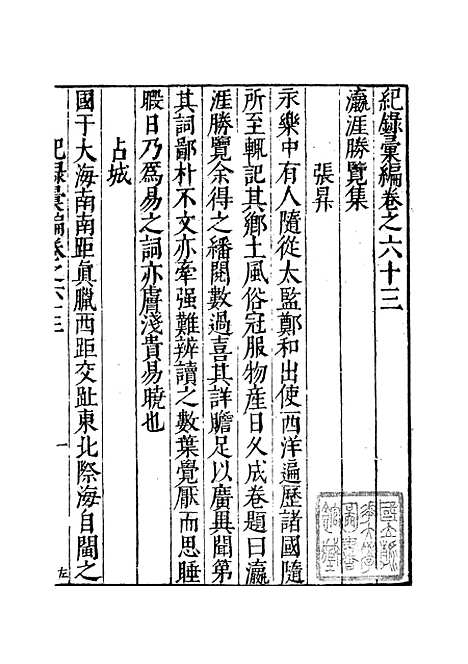 紀錄彙編卷之六十三
瀛涯勝覽集
張昇
永樂中有人隨從太監鄭和出使西洋遍歷諸國隨
所至輒記其鄉土風俗冠服物産日久成卷題曰瀛
涯勝覽余得之繙閱數過喜其詳贍足以廣異聞第
其詞鄙朴不文亦牽强難辨讀之數葉覺厭而思睡
暇日乃爲易之詞亦膚淺貴易曉也
占城
國于大海南南距眞臘西距交趾東北際海自閩之
紀録彙編卷之六十三
一
左